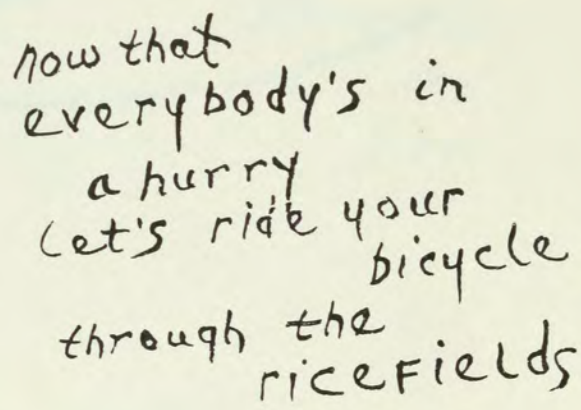 now that
everybody's in
a hurry
Let's ride your
bicycle
through the
ricefields